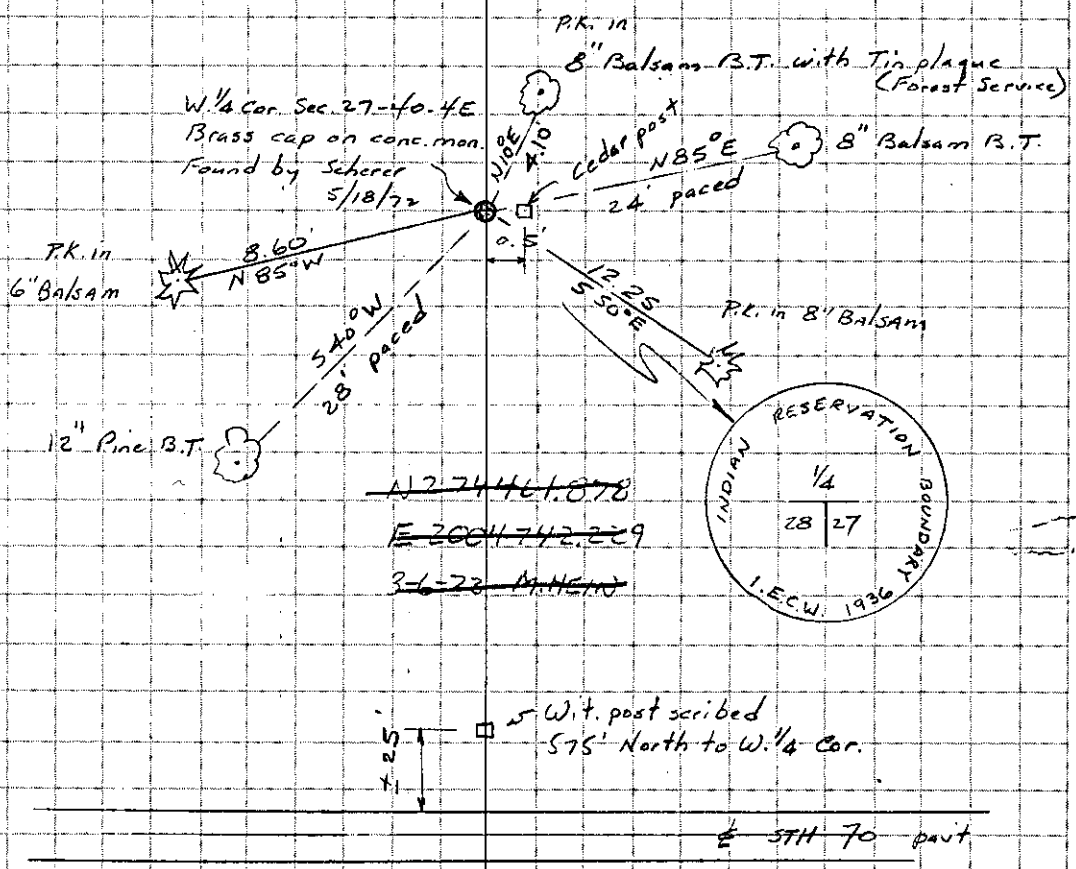 P.K. in
8" Balsam B.T. with Tin plaque
(Forest Service)
W.¼ Cor. Sec. 27-40-4E
Brass cap on conc. mon.
Found by Scherer
5/18/72
N10°E
4.10'
Cedar post
N85°E
24' paced
8" Balsam B.T.
0.5'
P.K. in
6" Balsam
8.60'
N 85° W
12.25
S 50° E
P.K. in 8" BALSAM
S40°W
28' paced
12" Pine B.T.
N 274461.878
E 2004742.229
3-6-73 M.HEIN
INDIAN RESERVATION BOUNDARY
1/4
28 27
I.E.C.W. 1936
Wit. post scribed
575' North to W.¼ Cor.
± 25'
℄ STH 70 pavt